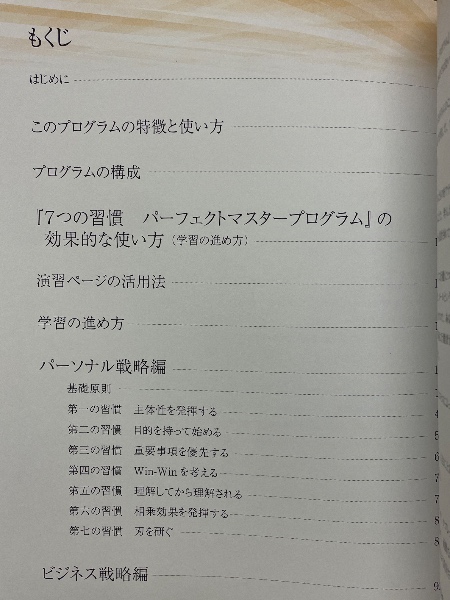 もくじ
はじめに
このプログラムの特徴と使い方
プログラムの構成
『7つの習慣　パーフェクトマスタープログラム』の
効果的な使い方（学習の進め方） 1
演習ページの活用法 1
学習の進め方 1
パーソナル戦略編 1
基礎原則
第一の習慣　主体性を発揮する 4
第二の習慣　目的を持って始める 5
第三の習慣　重要事項を優先する 6
第四の習慣　Win-Winを考える 7
第五の習慣　理解してから理解される 7
第六の習慣　相乗効果を発揮する 8
第七の習慣　刃を研ぐ 8
ビジネス戦略編 9